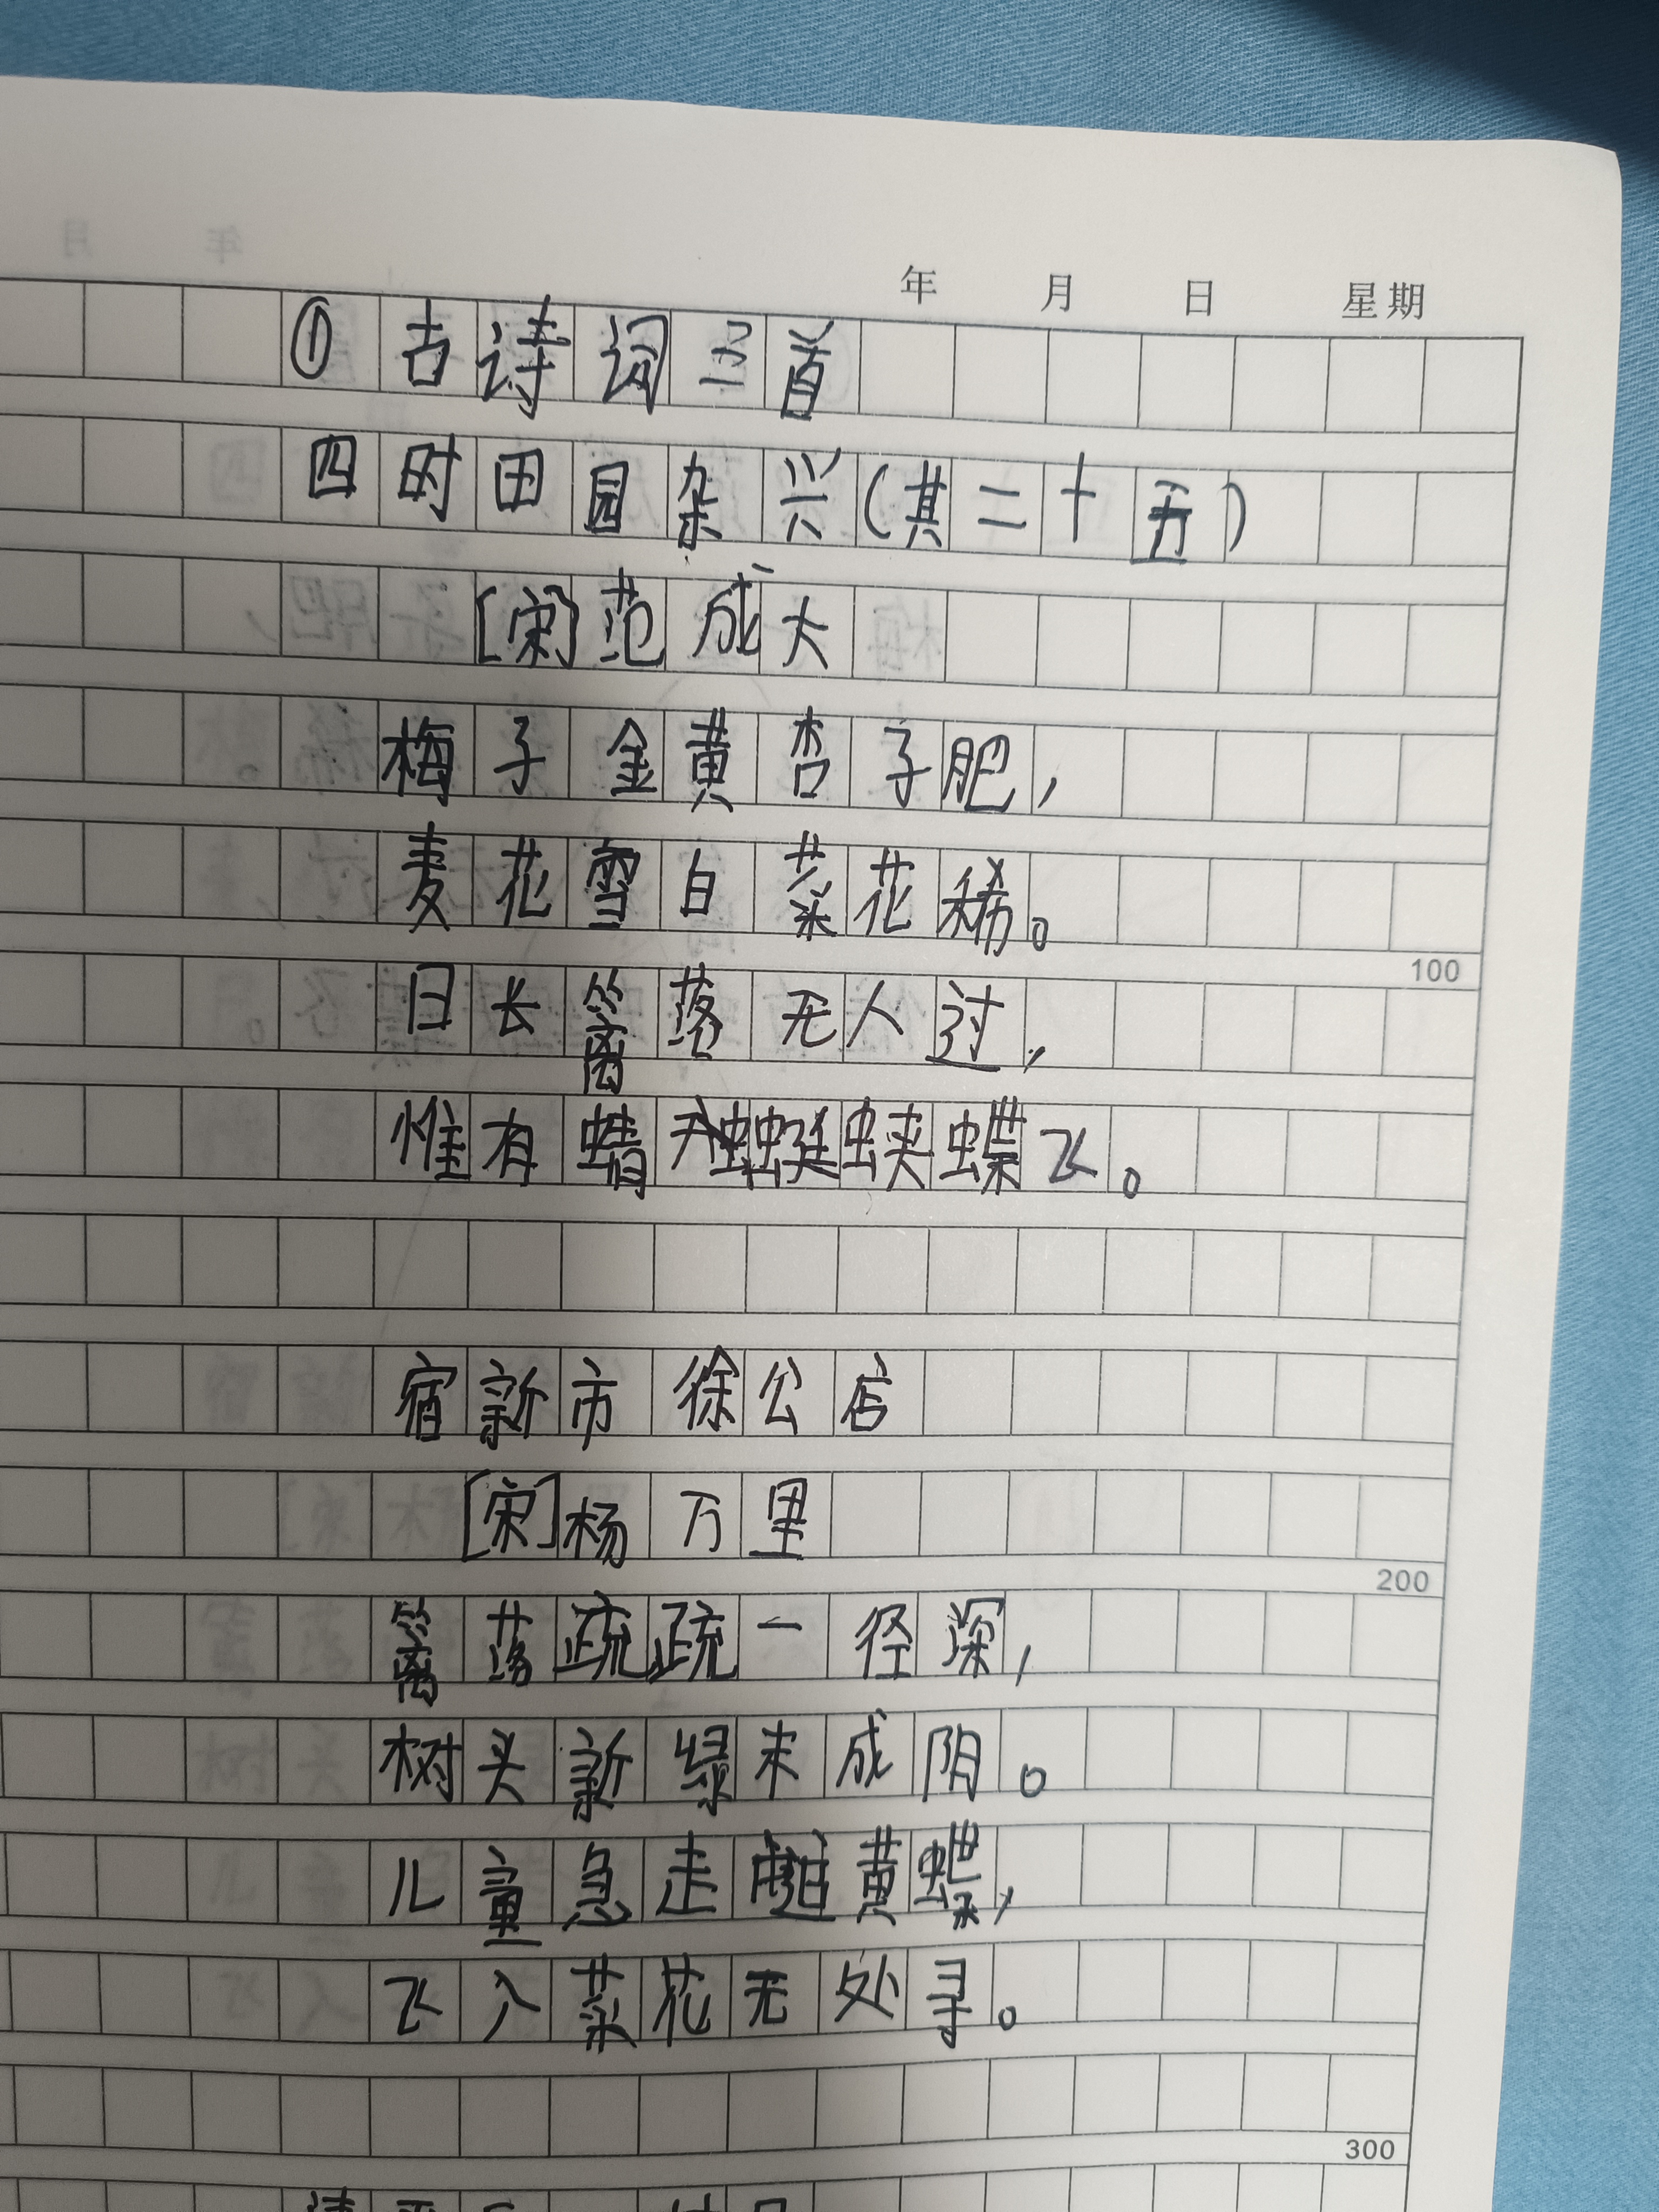 年 月 日 星期
① 古诗词三首
四时田园杂兴(其二十五)
[宋]范成大
梅子金黄杏子肥,
麦花雪白菜花稀。
100
日长篱落无人过,
惟有蜻蜓蛱蝶飞。
宿新市徐公店
[宋]杨万里
200
篱落疏疏一径深,
树头新绿未成阴。
儿童急走追黄蝶,
飞入菜花无处寻。
300